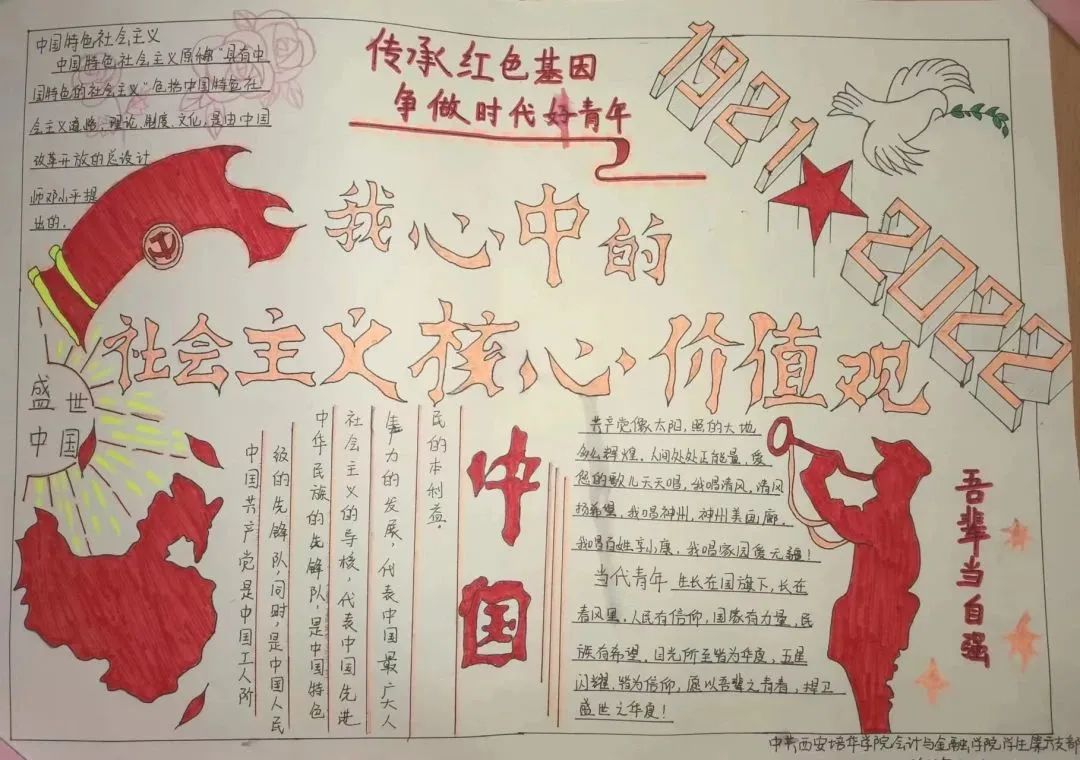 传承红色基因
争做时代好青年
1921
2022
中国特色社会主义
中国特色社会主义原称“具有中
国特色的社会主义”包括中国特色社
会主义道路、理论、制度、文化,是由中国
改革开放的总设计
师邓小平提
出的。
我心中的
社会主义核心价值观
盛世
中国
中国共产党是中国工人阶
级的先锋队,同时,是中国人民
中华民族的先锋队,是中国特色
社会主义的导核,代表中国先进
力的发展,代表中国最广大人
民的本利益。
中国
共产党像太阳,照的大地
多么辉煌,人间处处正能量,爱
您的歌儿天天唱,我唱清风,清风
扬希望,我唱神州,神州美画廊,
我唱百姓享小康,我唱家国爱无疆!
当代青年 生长在国旗下,长在
春风里,人民有信仰,国家有力量,民
族有希望,目光所至皆为华夏,五星
闪耀,皆为信仰,愿以吾辈之青春,捍卫
盛世之华夏!
吾辈当自强
中共西安培华学院会计与金融学院学生第六支部